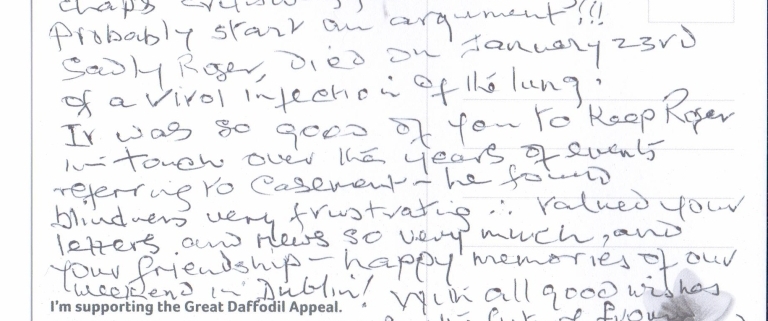 Probably start an argument!!!
Sadly Roger, died on January 23rd
of a virol infection of the lung.
It was so good of you to keep Roger
in-touch over the years of events
referring to Casement – he found
blindness very frustrating ∴ valued your
letters and news so very much, and
your friendship – happy memories of our
weekend in Dublin! With all good wishes
I'm supporting the Great Daffodil Appeal.